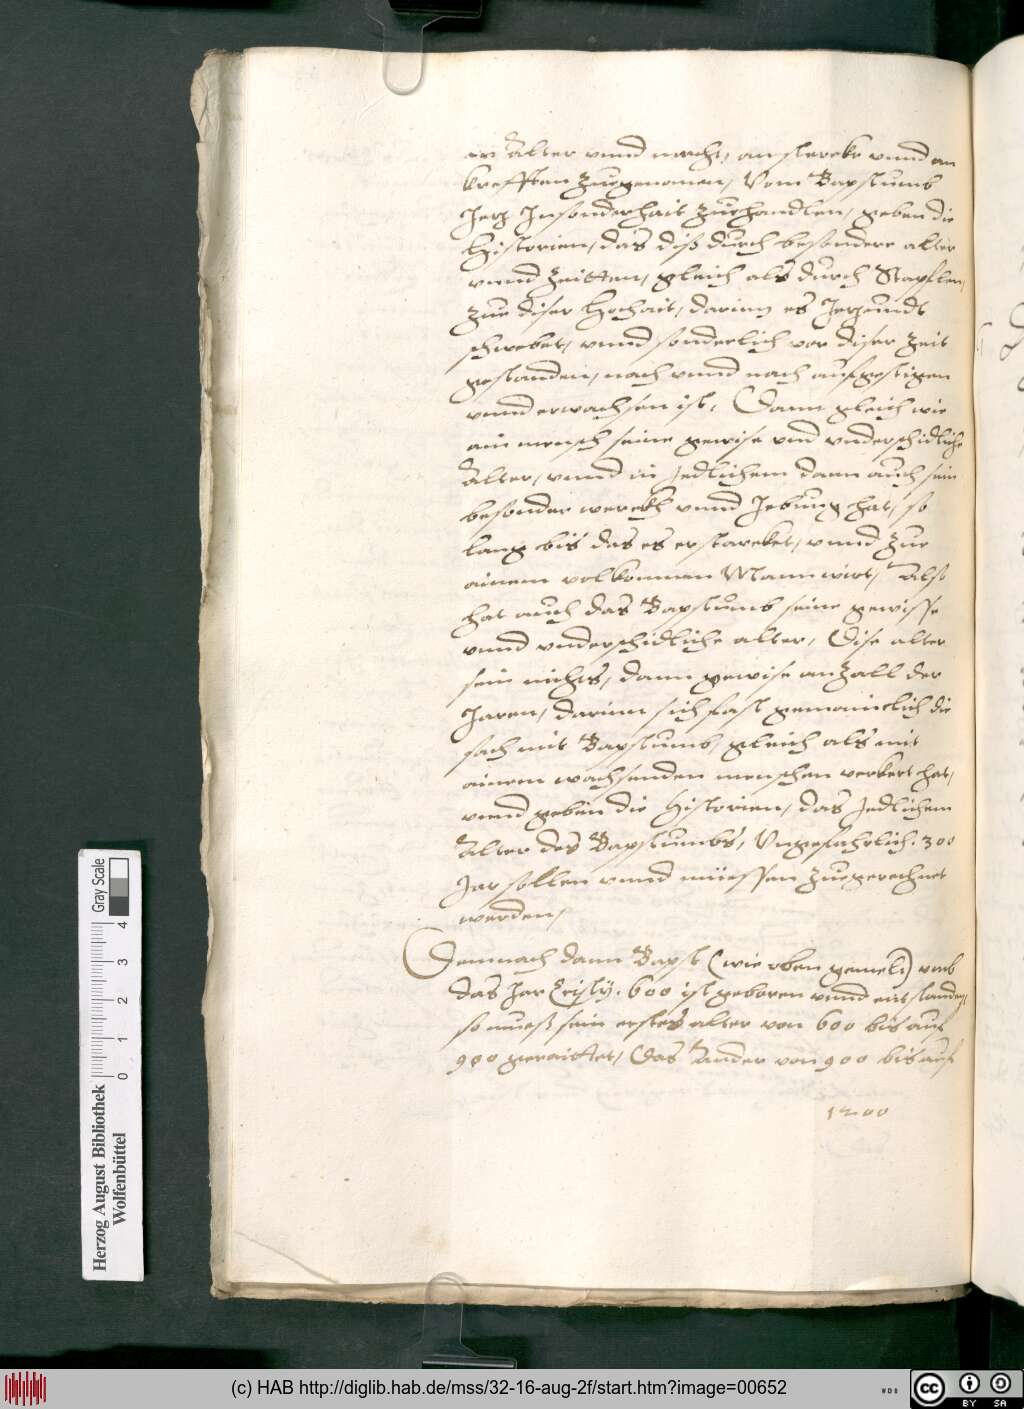 an Alter unnd macht, an stercke unnd an
krefften zuegenomen, Vom Bapstumb
Jetz Insonderhait zuehandlen, geben die
Historien, das diß durch besondere alter
unnd Zeitten, gleich als durch Stapflen,
zue diser Hochait, darinn es Jetzundt
schwebet, unnd sonderlich vor diser Zeit
gestanden, nach unnd nach aufgestigen
unnd erwachsen ist, Dann gleich wie
ain mensch seine gewise und underschidliche
Alter, unnd in Jedlichem dann auch sein
besonder werckh unnd Iebung hat, so
lang bis das es erstarcket, unnd zue
ainem volkommen Mann wirt, Also
hat auch das Bapstumb seine gewisse
unnd underschidliche alter, Dise alter
sein nichts, dann gewise anzall der
Jaren, darinn sich fast gemainclich die
sach mit Bapstumb, gleich als mit
ainem wachsenden menschen verkert hat,
unnd geben die Historien, das Jedlichem
Alter des Bapstumbs, Ungefahrlich. 300
Jar sollen unnd müessen zuegerechnet
werden,
Demnach dann Bapst (wie oben gemelt) umb
das Jar Cristÿ. 600 ist geboren unnd entstanden,
so mueß sein erstes alter von 600 bis auf
900 geraittet, Das Ander von 900 bis auf
1200
Gray Scale
0 1 2 3 4
Herzog August Bibliothek
Wolfenbüttel
(c) HAB http://diglib.hab.de/mss/32-16-aug-2f/start.htm?image=00652
WDB
cc BY SA